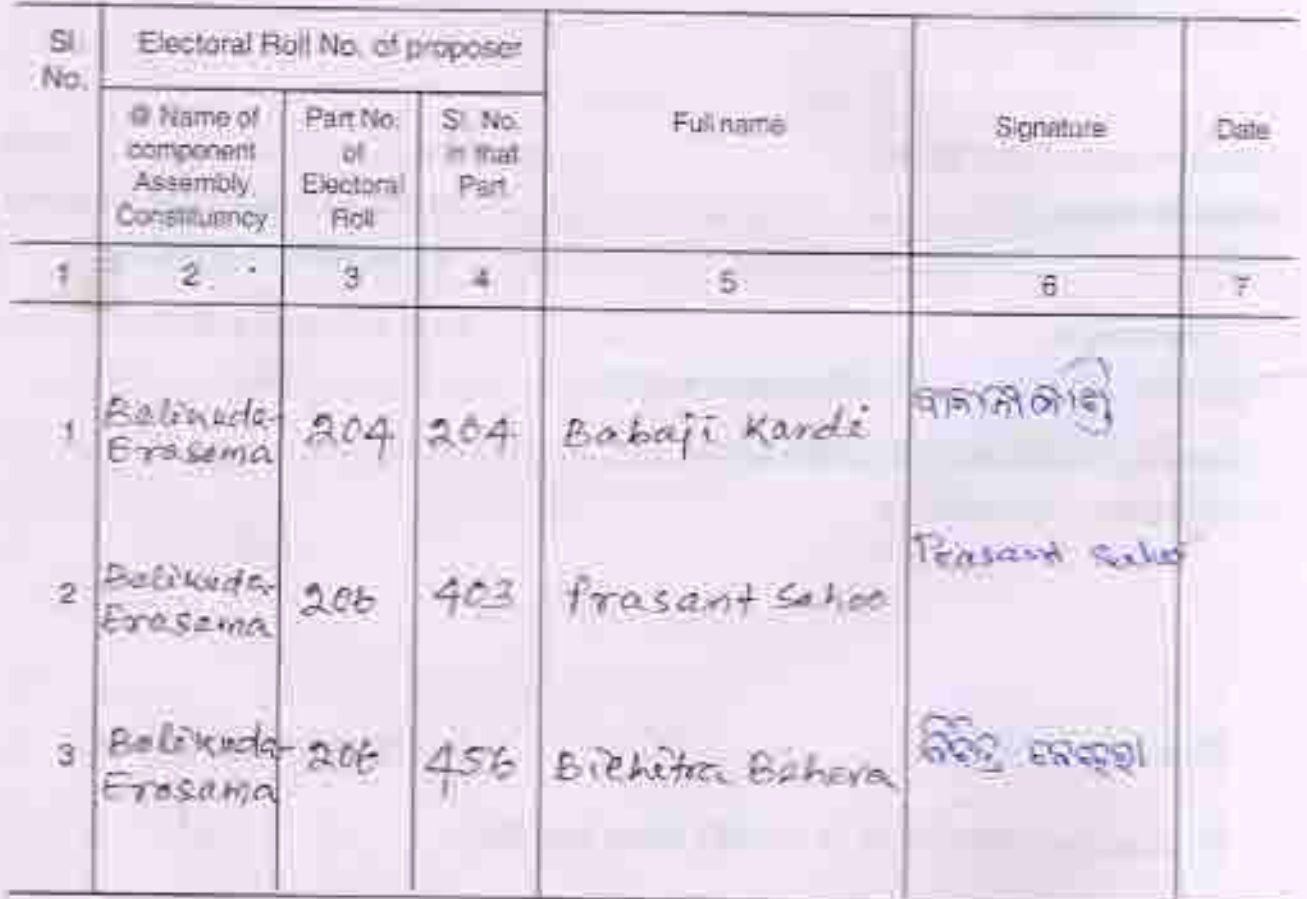 Sl. No.
Electoral Roll No. of proposer
@ Name of component Assembly Constituency
Part No. of Electoral Roll
Sl. No. in that Part
Full name
Signature
Date
1 2 3 4 5 6 7
1 Balikuda-Erasama 204 204 Babaji Kandi
2 Balikuda-Erasama 206 403 Prasant Sahoo Prasant Sahoo
3 Balikuda-Erasama 206 456 Bichitra Behera ବିଚିତ୍ର ବେହେରା